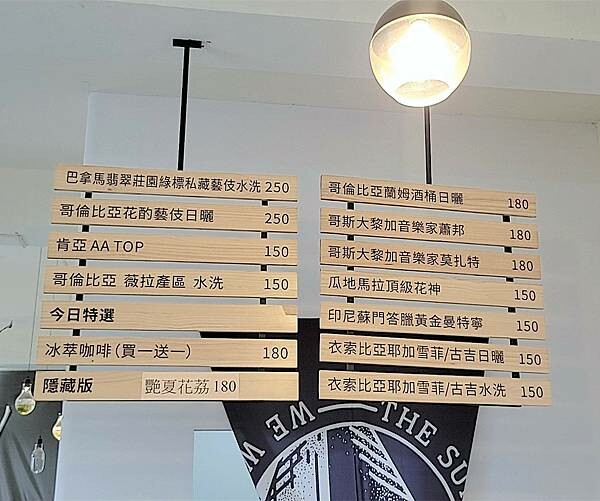 巴拿馬翡翠莊園綠標私藏藝伎水洗 250
哥倫比亞花酌藝伎日曬 250
肯亞 AA TOP 150
哥倫比亞 薇拉產區 水洗 150
今日特選
冰萃咖啡(買一送一) 180
隱藏版 艷夏花荔 180
哥倫比亞蘭姆酒桶日曬 180
哥斯大黎加音樂家蕭邦 180
哥斯大黎加音樂家莫扎特 180
瓜地馬拉頂級花神 150
印尼蘇門答臘黃金曼特寧 150
衣索比亞耶加雪菲/古吉日曬 150
衣索比亞耶加雪菲/古吉水洗 150
WE THE SU